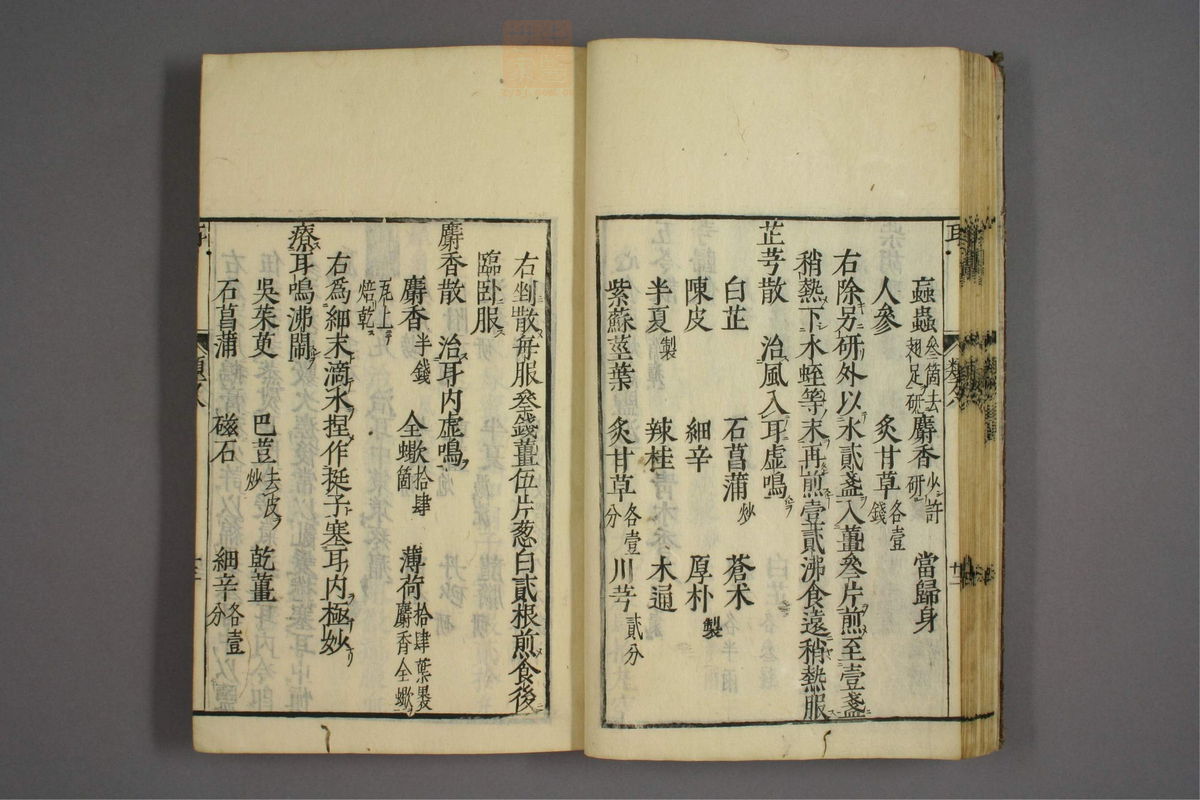 䖟蟲叄箇去翅足研 麝香少許研 當歸身
人參 炙甘草各壹錢
右除另研外以水貳盞入薑叄片煎至壹盞
稍熱下水蛭等末再煎壹貳沸食遠稍熱服
芷芎散 治風入耳虛鳴
白芷 石菖蒲炒 蒼术
陳皮 細辛 厚朴製
半夏製 辣桂 木通
紫蘇莖葉 炙甘草各壹分 川芎貳分
右剉散每服叄錢薑伍片葱白貳根煎食後
臨卧服
麝香散 治耳內虛鳴
麝香半錢 全蠍拾肆箇 薄荷拾肆葉裹麝香全蠍
瓦上焙乾
右爲細末滴水捏作挺子塞耳內極妙
療耳鳴沸鬧
吳茱萸 巴荳去皮炒 乾薑
石菖蒲 磁石 細辛各壹分